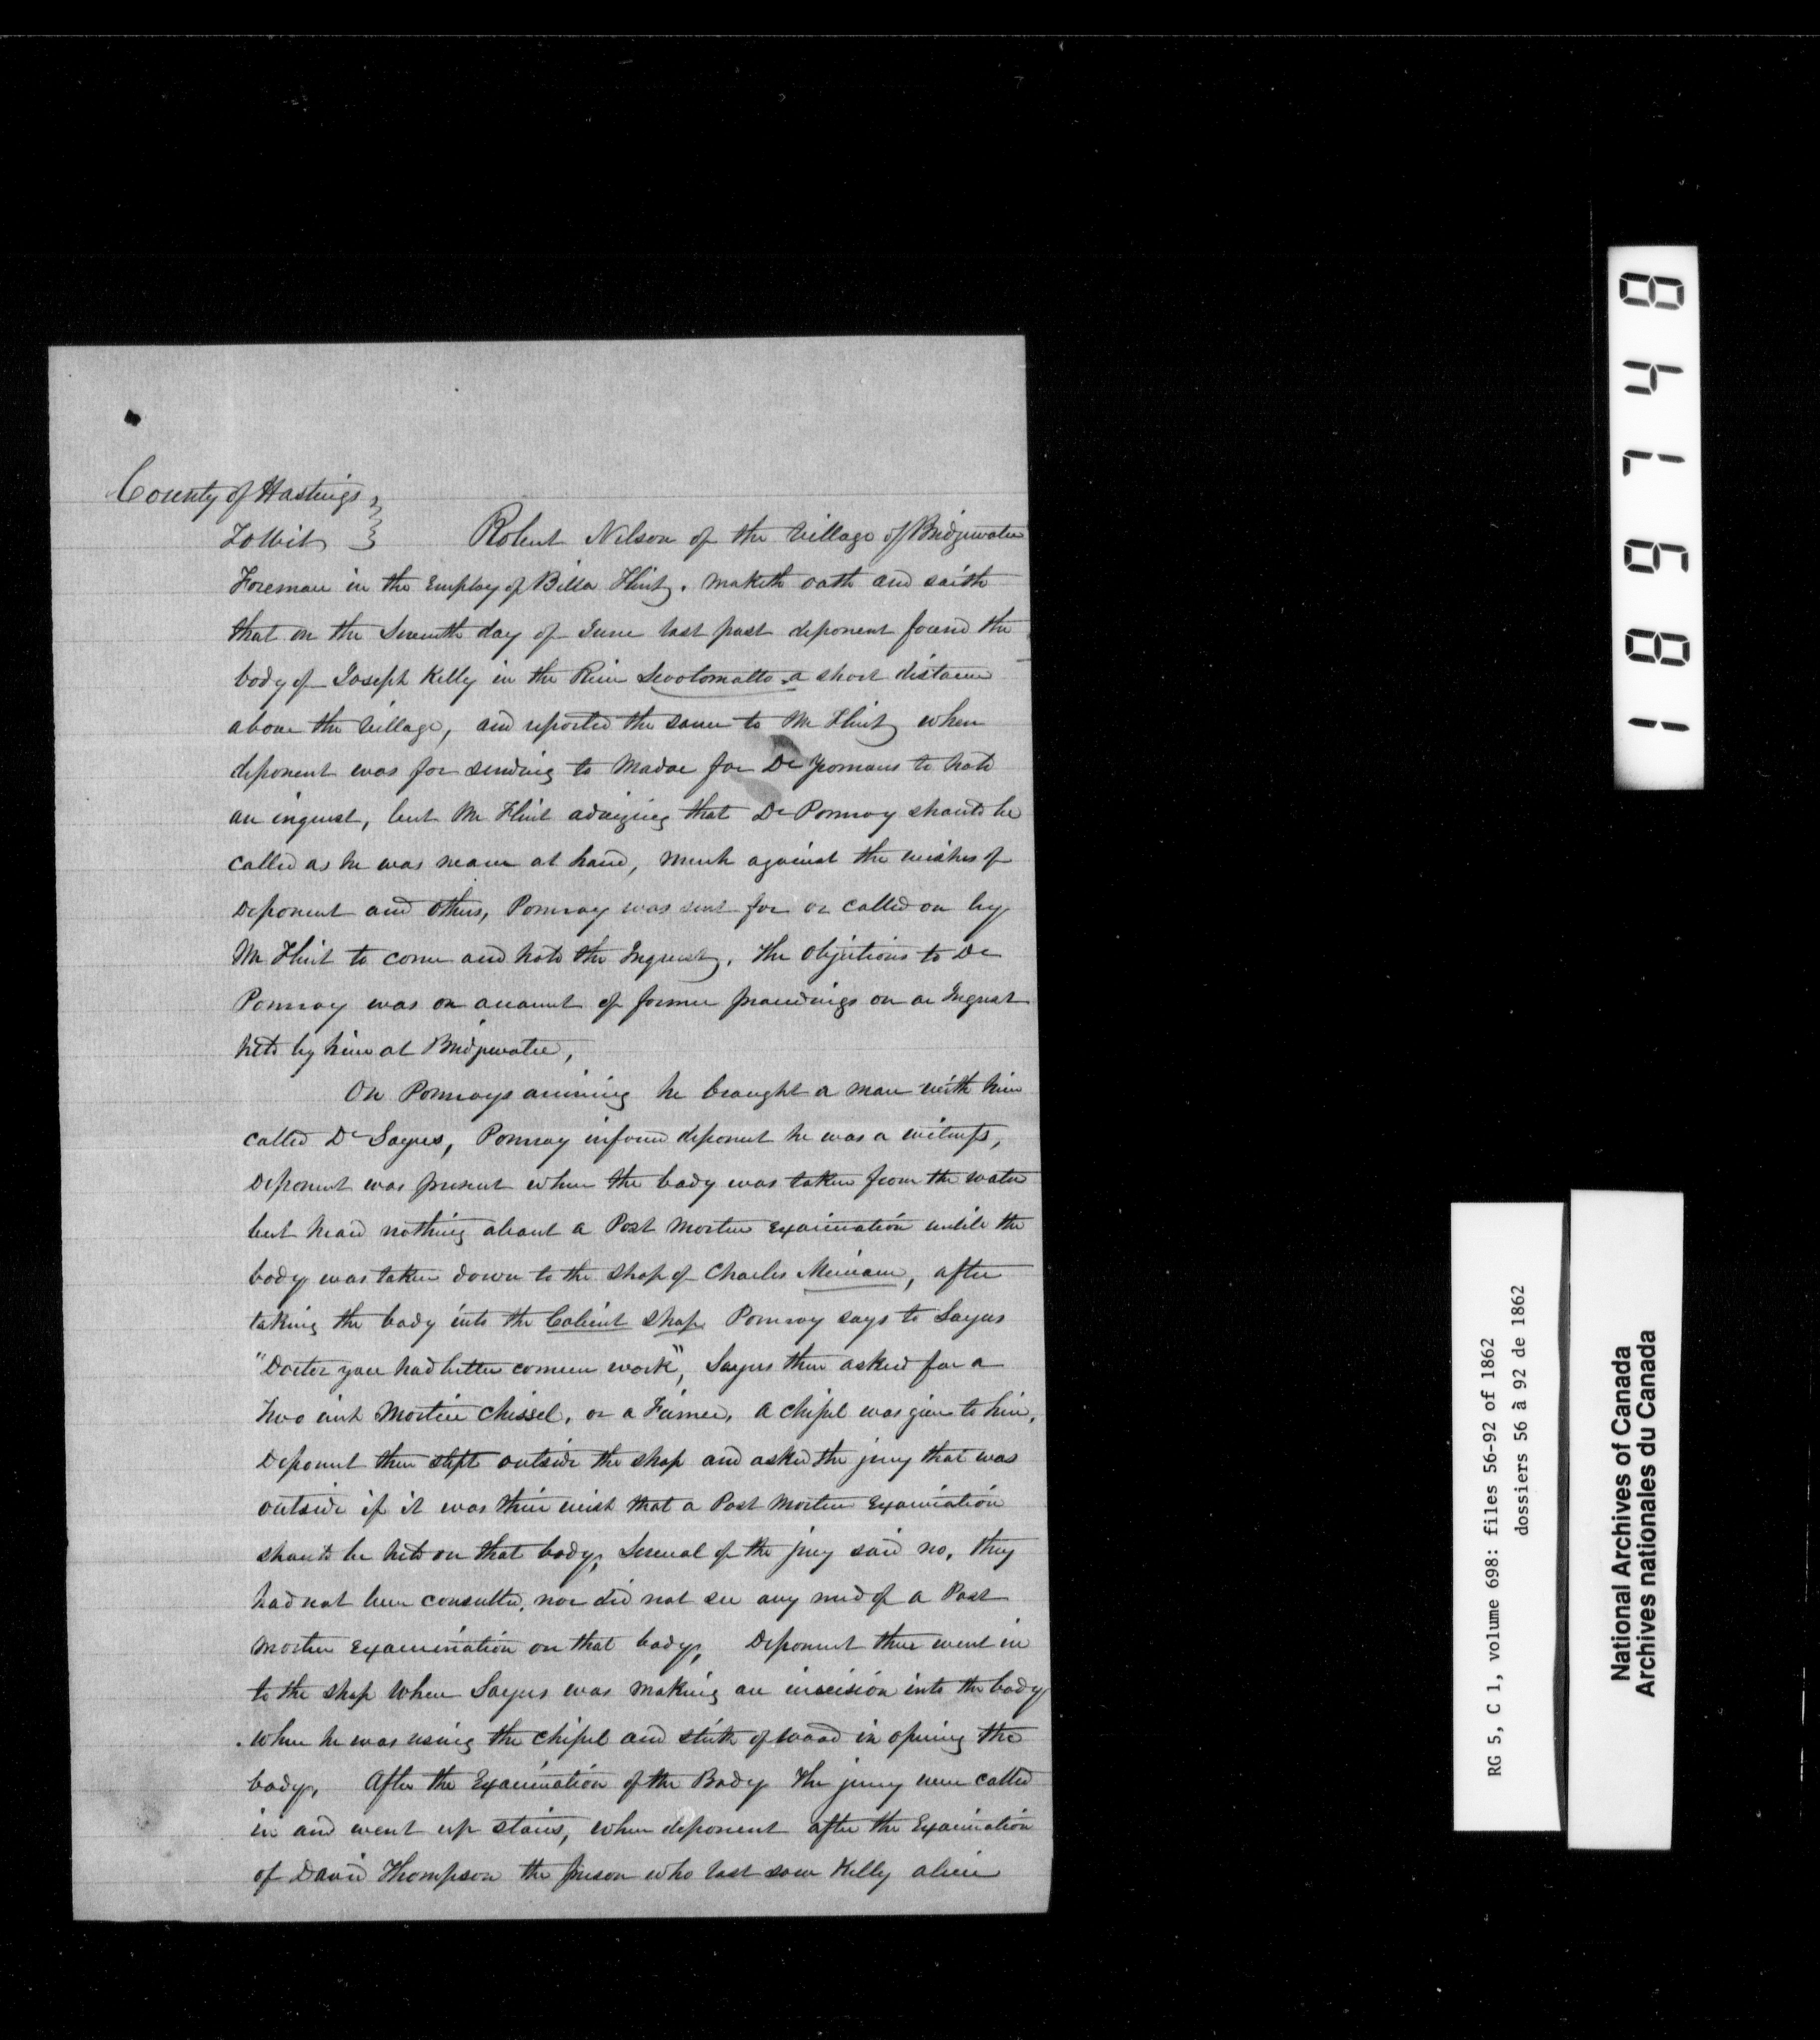 County of Hastings }
To Wit }      Robert Nelson of the Village of Bridgewater
Foreman in the Employ of Billa Flint, maketh oath and saith
that on the Seventh day of June last past deponent found the
body of Joseph Kelly in the River Scootomatto a short distance
above the Village, and reported the same to Mr Flint when
deponent was for sending to Madoc for Dr Yeomans to hold
an inquest, but Mr Flint advising that Dr Pomroy should be
called as he was nearer at hand, much against the wishes of
Deponent and others, Pomroy was sent for or called on by
Mr Flint to come and hold the Inquest, The Objections to Dr
Pomroy was on account of former proceedings on an Inquest
held by him at Bridgewater,
On Pomroys arriving he brought a man with him
called Dr Sayers, Pomroy informed deponent he was a witness,
Deponent was present when the body was taken from the water
but heard nothing about a Post Mortem Examination untill the
body was taken down to the shop of Charles Merriam, after
taking the body into the Cabinet shop Pomroy says to Sayers
"Doctor you had better commence work", Sayers then asked for a
two inch Mortice Chissel, or a Firmer, A Chissel was given to him,
Deponent then stept outside the shop and asked the jury that was
outside if it was their wish that a Post Mortem Examination
should be held on that body, Several of the jury said no, they
had not been consulted, nor did not see any need of a Post
Mortem Examination on that body, Deponent then went in
to the shop when Sayers was making an incision into the body
when he was using the Chissel and stick of wood in opening the
body, After the Examination of the Body The jury were called
in and went up stairs, when deponent after the Examination
of David Thompson the person who last saw Kelly alive
189748
RG 5, C 1, volume 698: files 56-92 of 1862
dossiers 56 à 92 de 1862
National Archives of Canada
Archives nationales du Canada